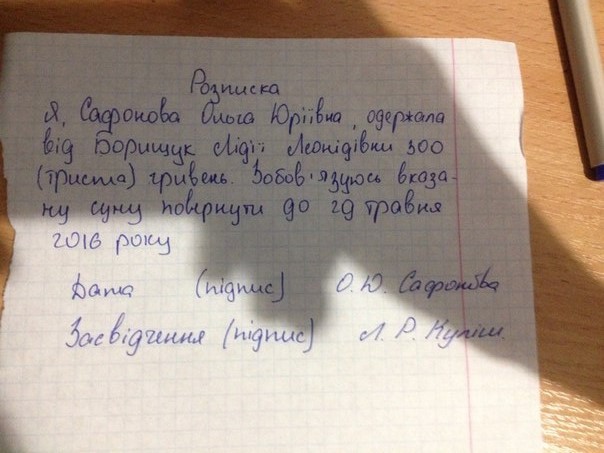 Розписка
Я, Сафонова Ольга Юріївна, одержала
від Борищук Лідії Леонідівни 300
(триста) гривень. Зобов'язуюсь вказа-
ну суму повернути до 29 травня
2016 року
Дата (підпис) О. Ю. Сафонова
Засвідчення (підпис) Л. Р. Купіш.